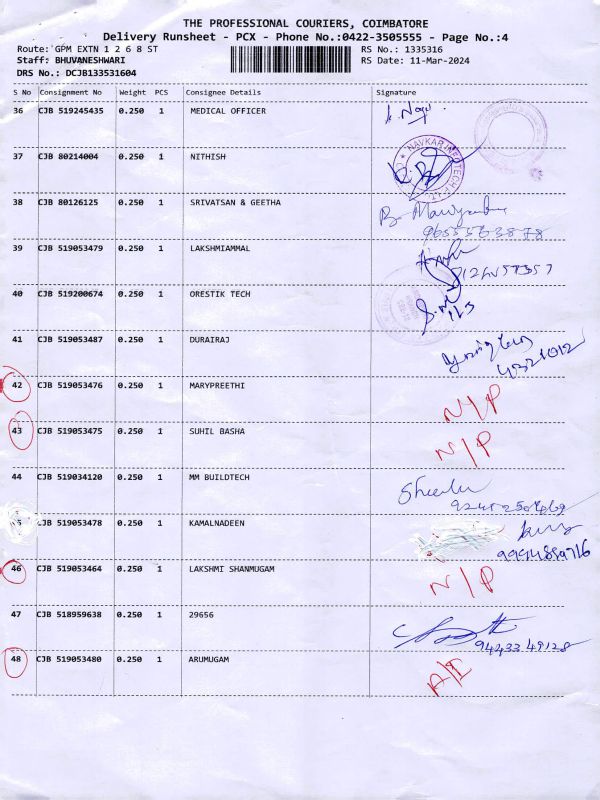 THE PROFESSIONAL COURIERS, COIMBATORE
Delivery Runsheet - PCX - Phone No.:0422-3505555 - Page No.:4
Route: GPM EXTN 1 2 6 8 ST RS No.: 1335316
Staff: BHUVANESHWARI RS Date: 11-Mar-2024
DRS No.: DCJB133531604
S No Consignment No Weight PCS Consignee Details Signature
36 CJB 519245435 0.250 1 MEDICAL OFFICER
37 CJB 80214004 0.250 1 NITHISH
NAVKAR INFOTECH
38 CJB 80126125 0.250 1 SRIVATSAN & GEETHA
39 CJB 519053479 0.250 1 LAKSHMIAMMAL
40 CJB 519200674 0.250 1 ORESTIK TECH
41 CJB 519053487 0.250 1 DURAIRAJ
42 CJB 519053476 0.250 1 MARYPREETHI N/P
43 CJB 519053475 0.250 1 SUHIL BASHA N/P
44 CJB 519034120 0.250 1 MM BUILDTECH
CJB 519053478 0.250 1 KAMALNADEEN
46 CJB 519053464 0.250 1 LAKSHMI SHANMUGAM N/P
47 CJB 518959638 0.250 1 29656
94433 49128
48 CJB 519053480 0.250 1 ARUMUGAM A/I